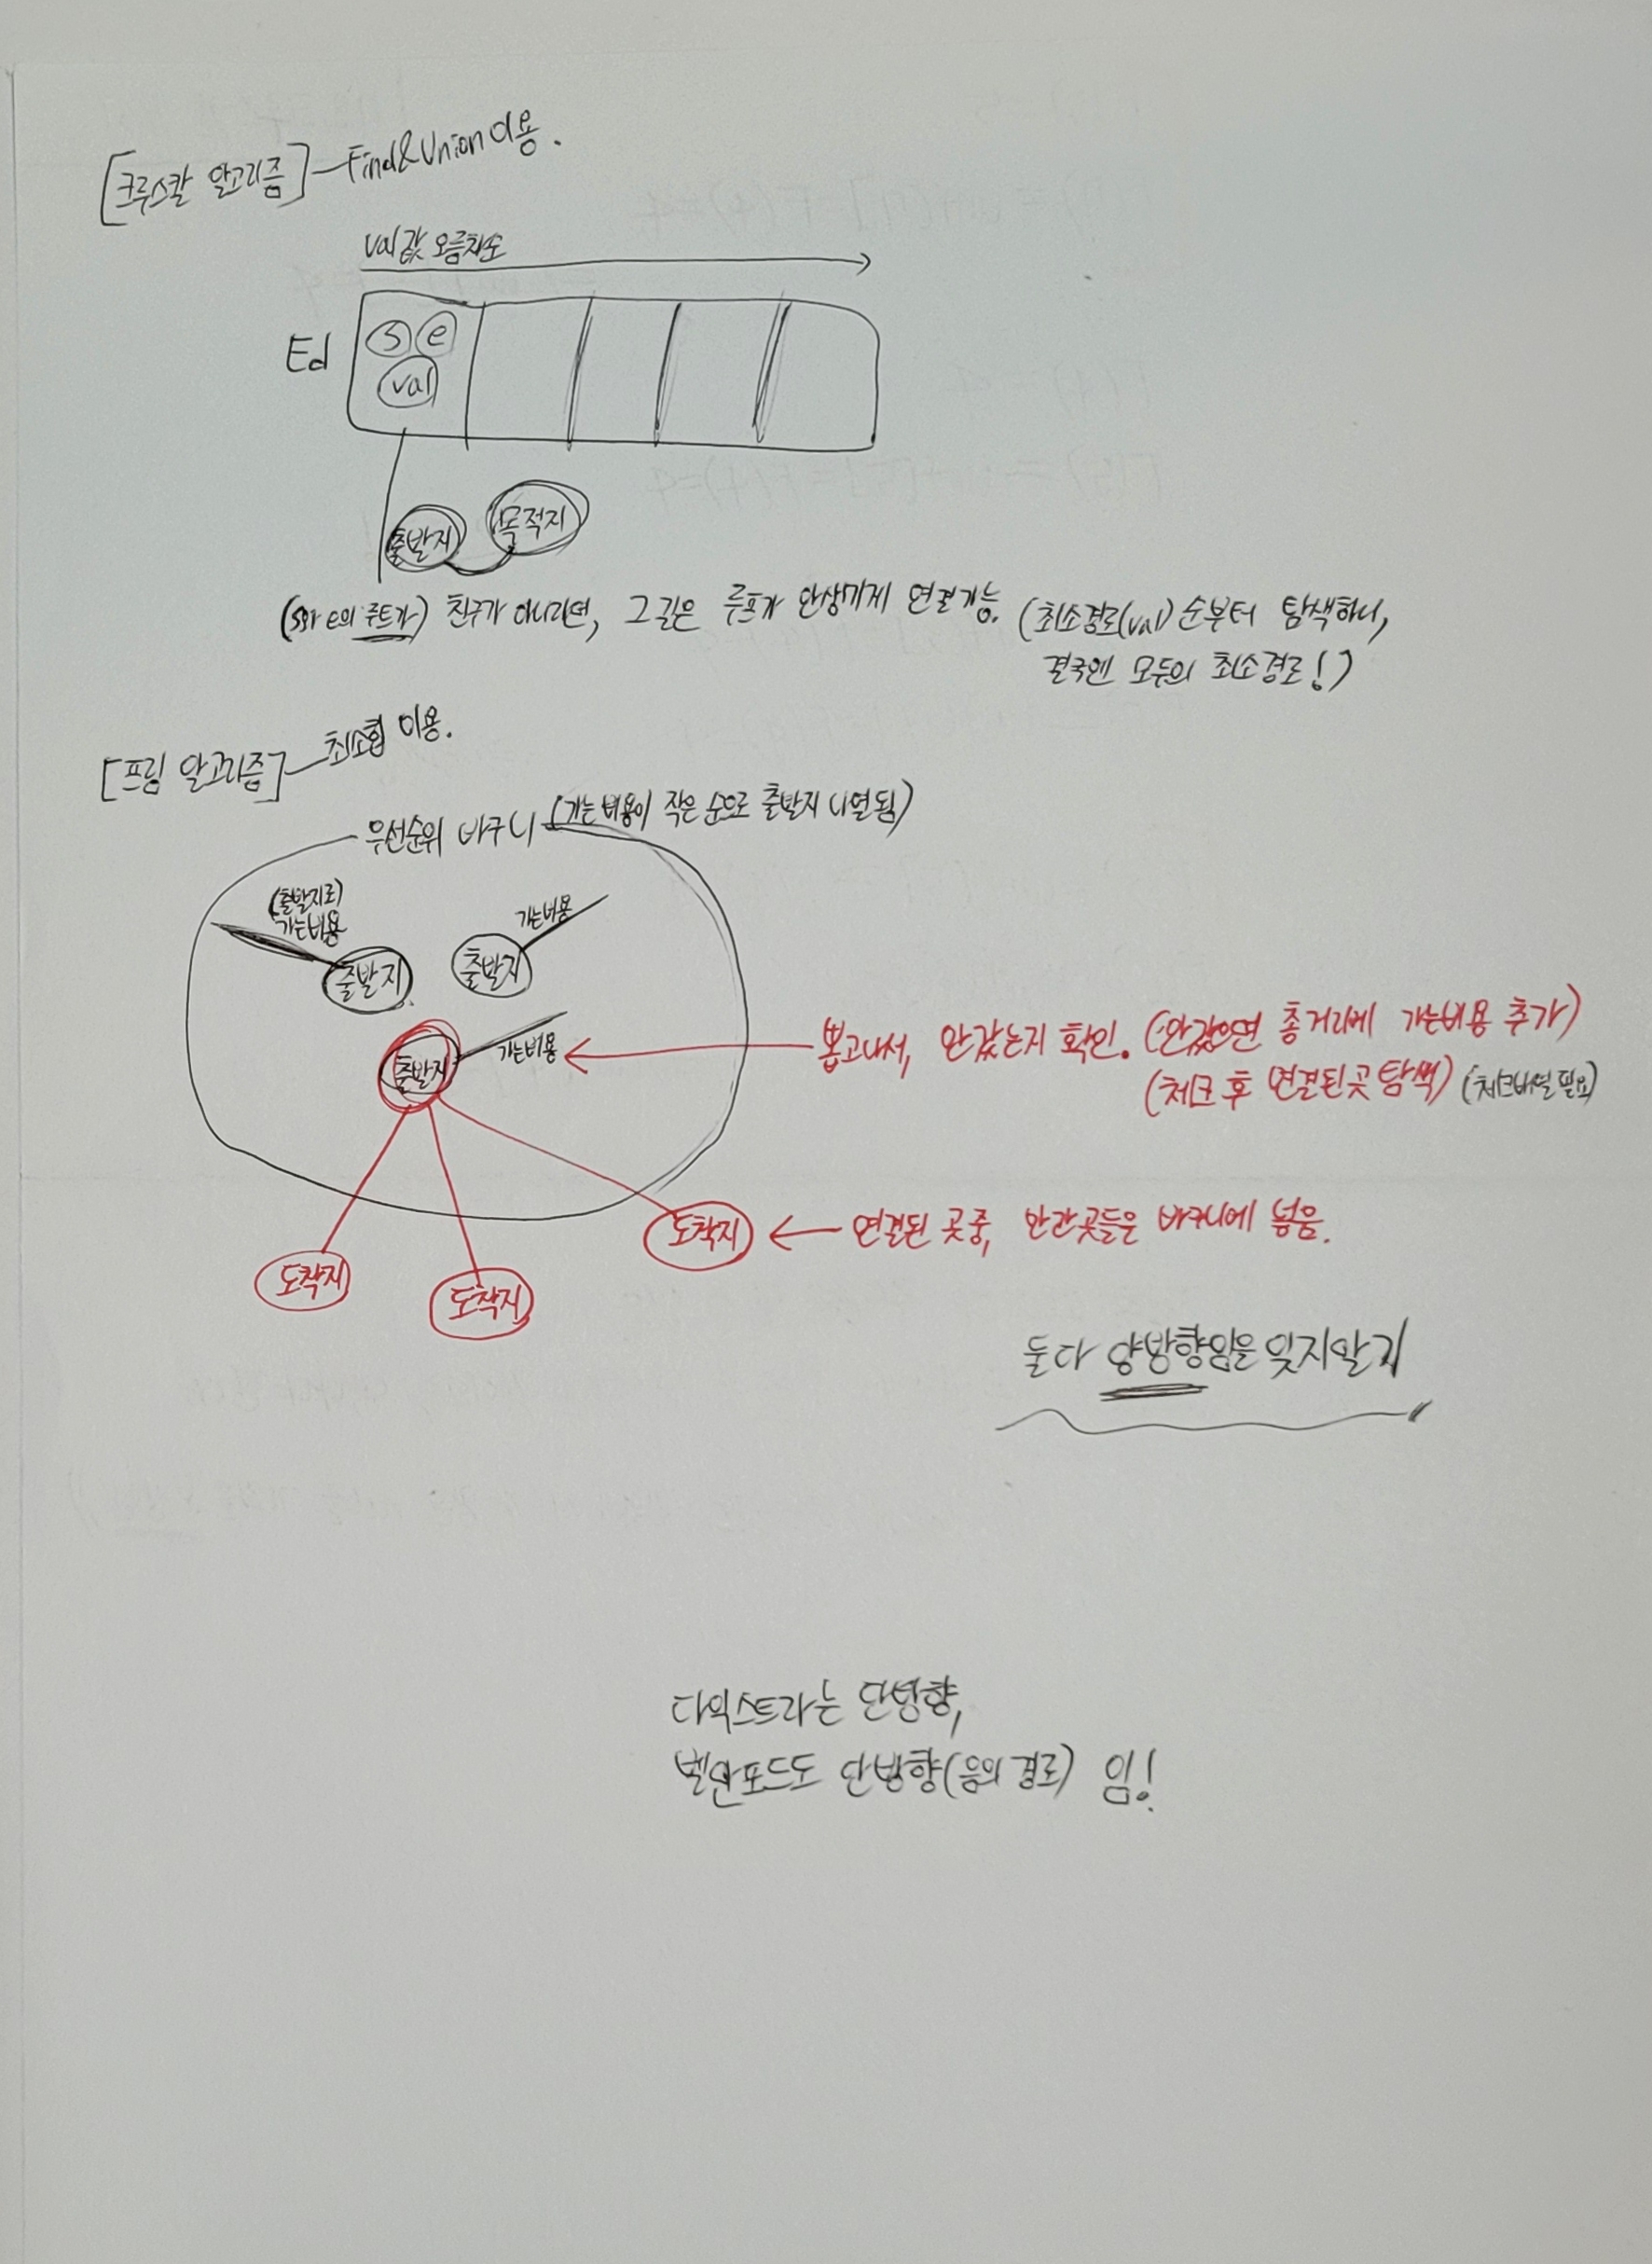 [크루스칼 알고리즘] — Find&Union 이용.
val값 오름차순
Ed
s e
val
출발지 목적지
(s와 e의 루트가) 친구가 아니라면, 그 길은 루프가 안생기게 연결가능. (최소경로(val) 순부터 탐색하니,
결국엔 모두의 최소경로!)
[프림 알고리즘] — 최소힙 이용.
우선순위 바구니 (가는비용이 작은 순으로 출발지 나열됨)
(출발지로)
가는비용
가는비용
출발지 출발지
출발지 가는비용
뽑고나서, 안갔는지 확인. (안갔으면 총거리에 가는비용 추가)
(체크 후 연결된곳 탐색) (체크배열 필요)
도착지 연결된 곳 중, 안간곳들은 바구니에 넣음.
도착지 도착지
둘다 양방향임을 잊지말기
다익스트라는 단방향,
벨만포드도 단방향(음의 경로) 임!